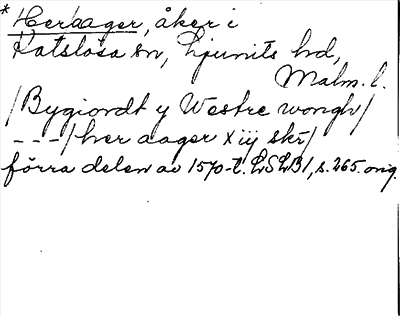 * Heraager, åker i
Katslösa sn, Ljunits hd,
Malm. l.
/Bygiordt y Westre wongh/
---/her aager X iij skr/
förra delen av 1570-t. LSLB1, s. 265. orig.